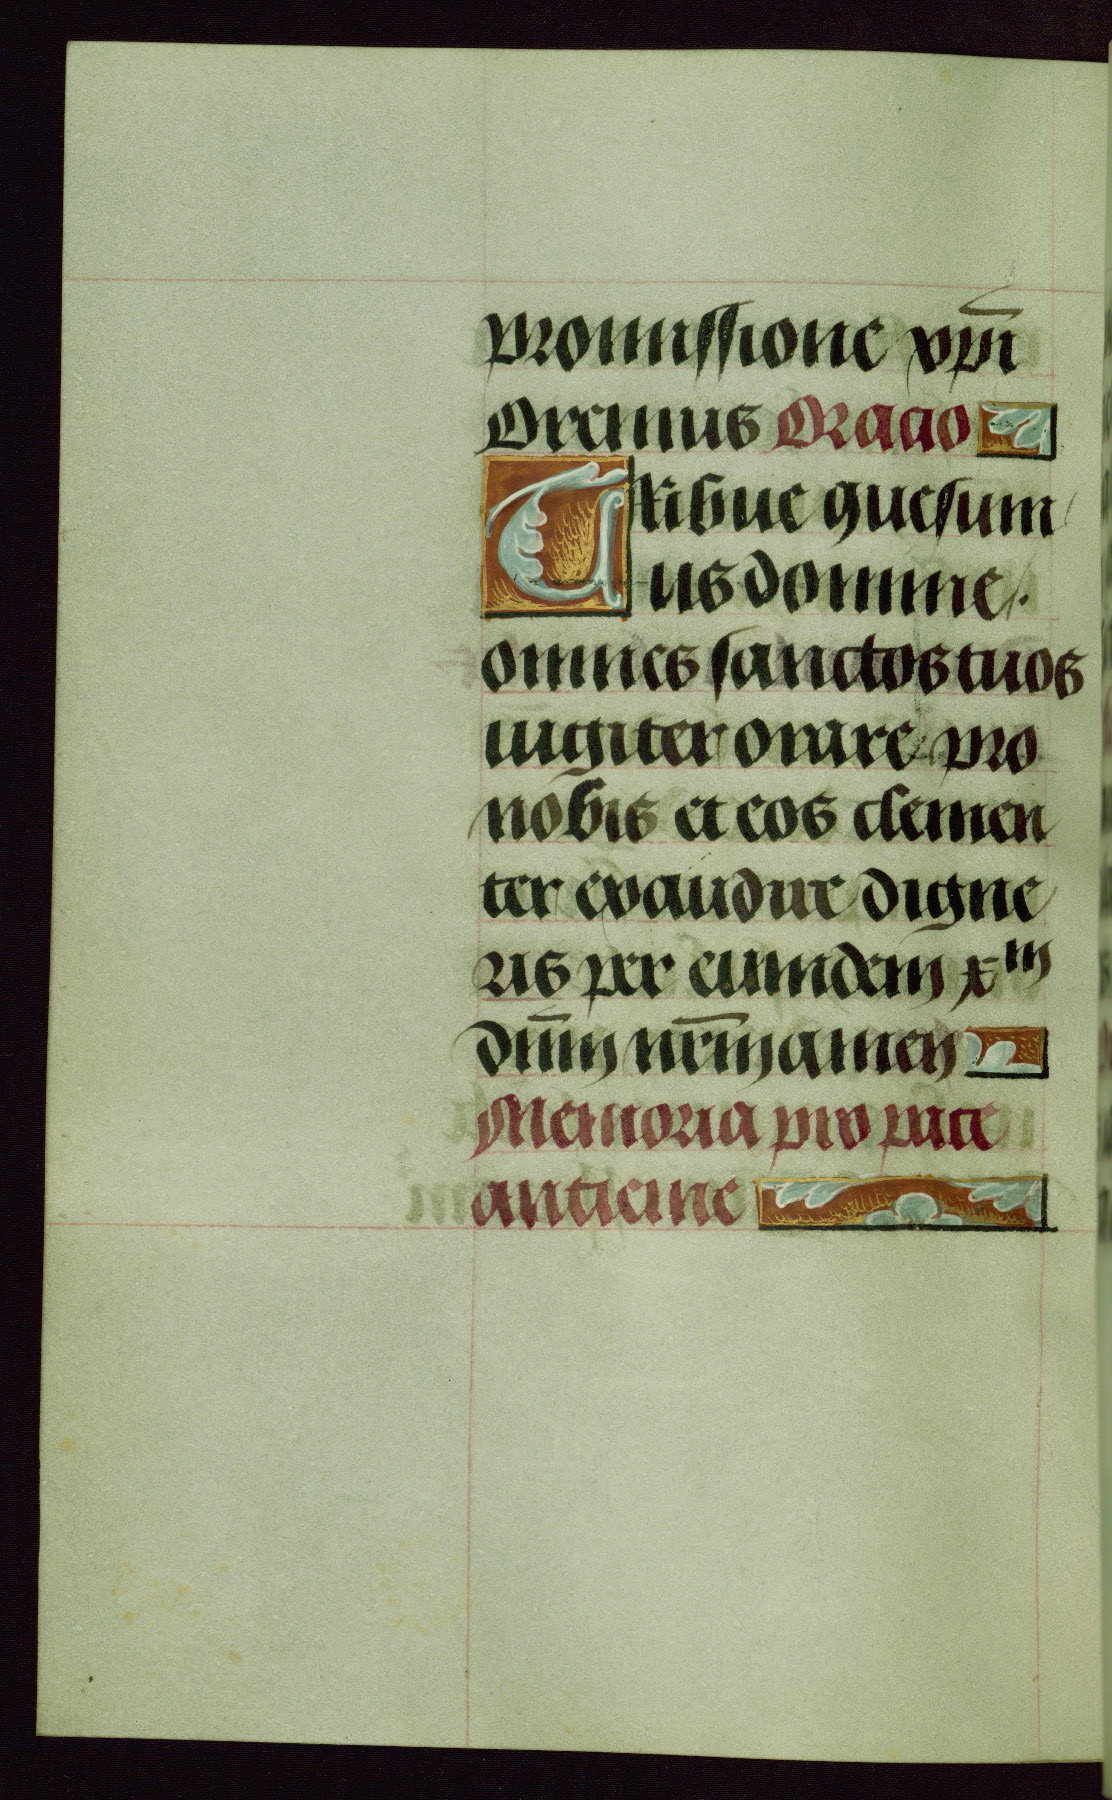 promissione xpī
Oremus Oracio
Tribue quesum
us domine
omnes sanctos tuos
iugiter orare pro
nobis et eos clemen
ter exaudire digne
ris per eumdem xm
dn̄m nr̄m amen
Memoria pro pace
anticine